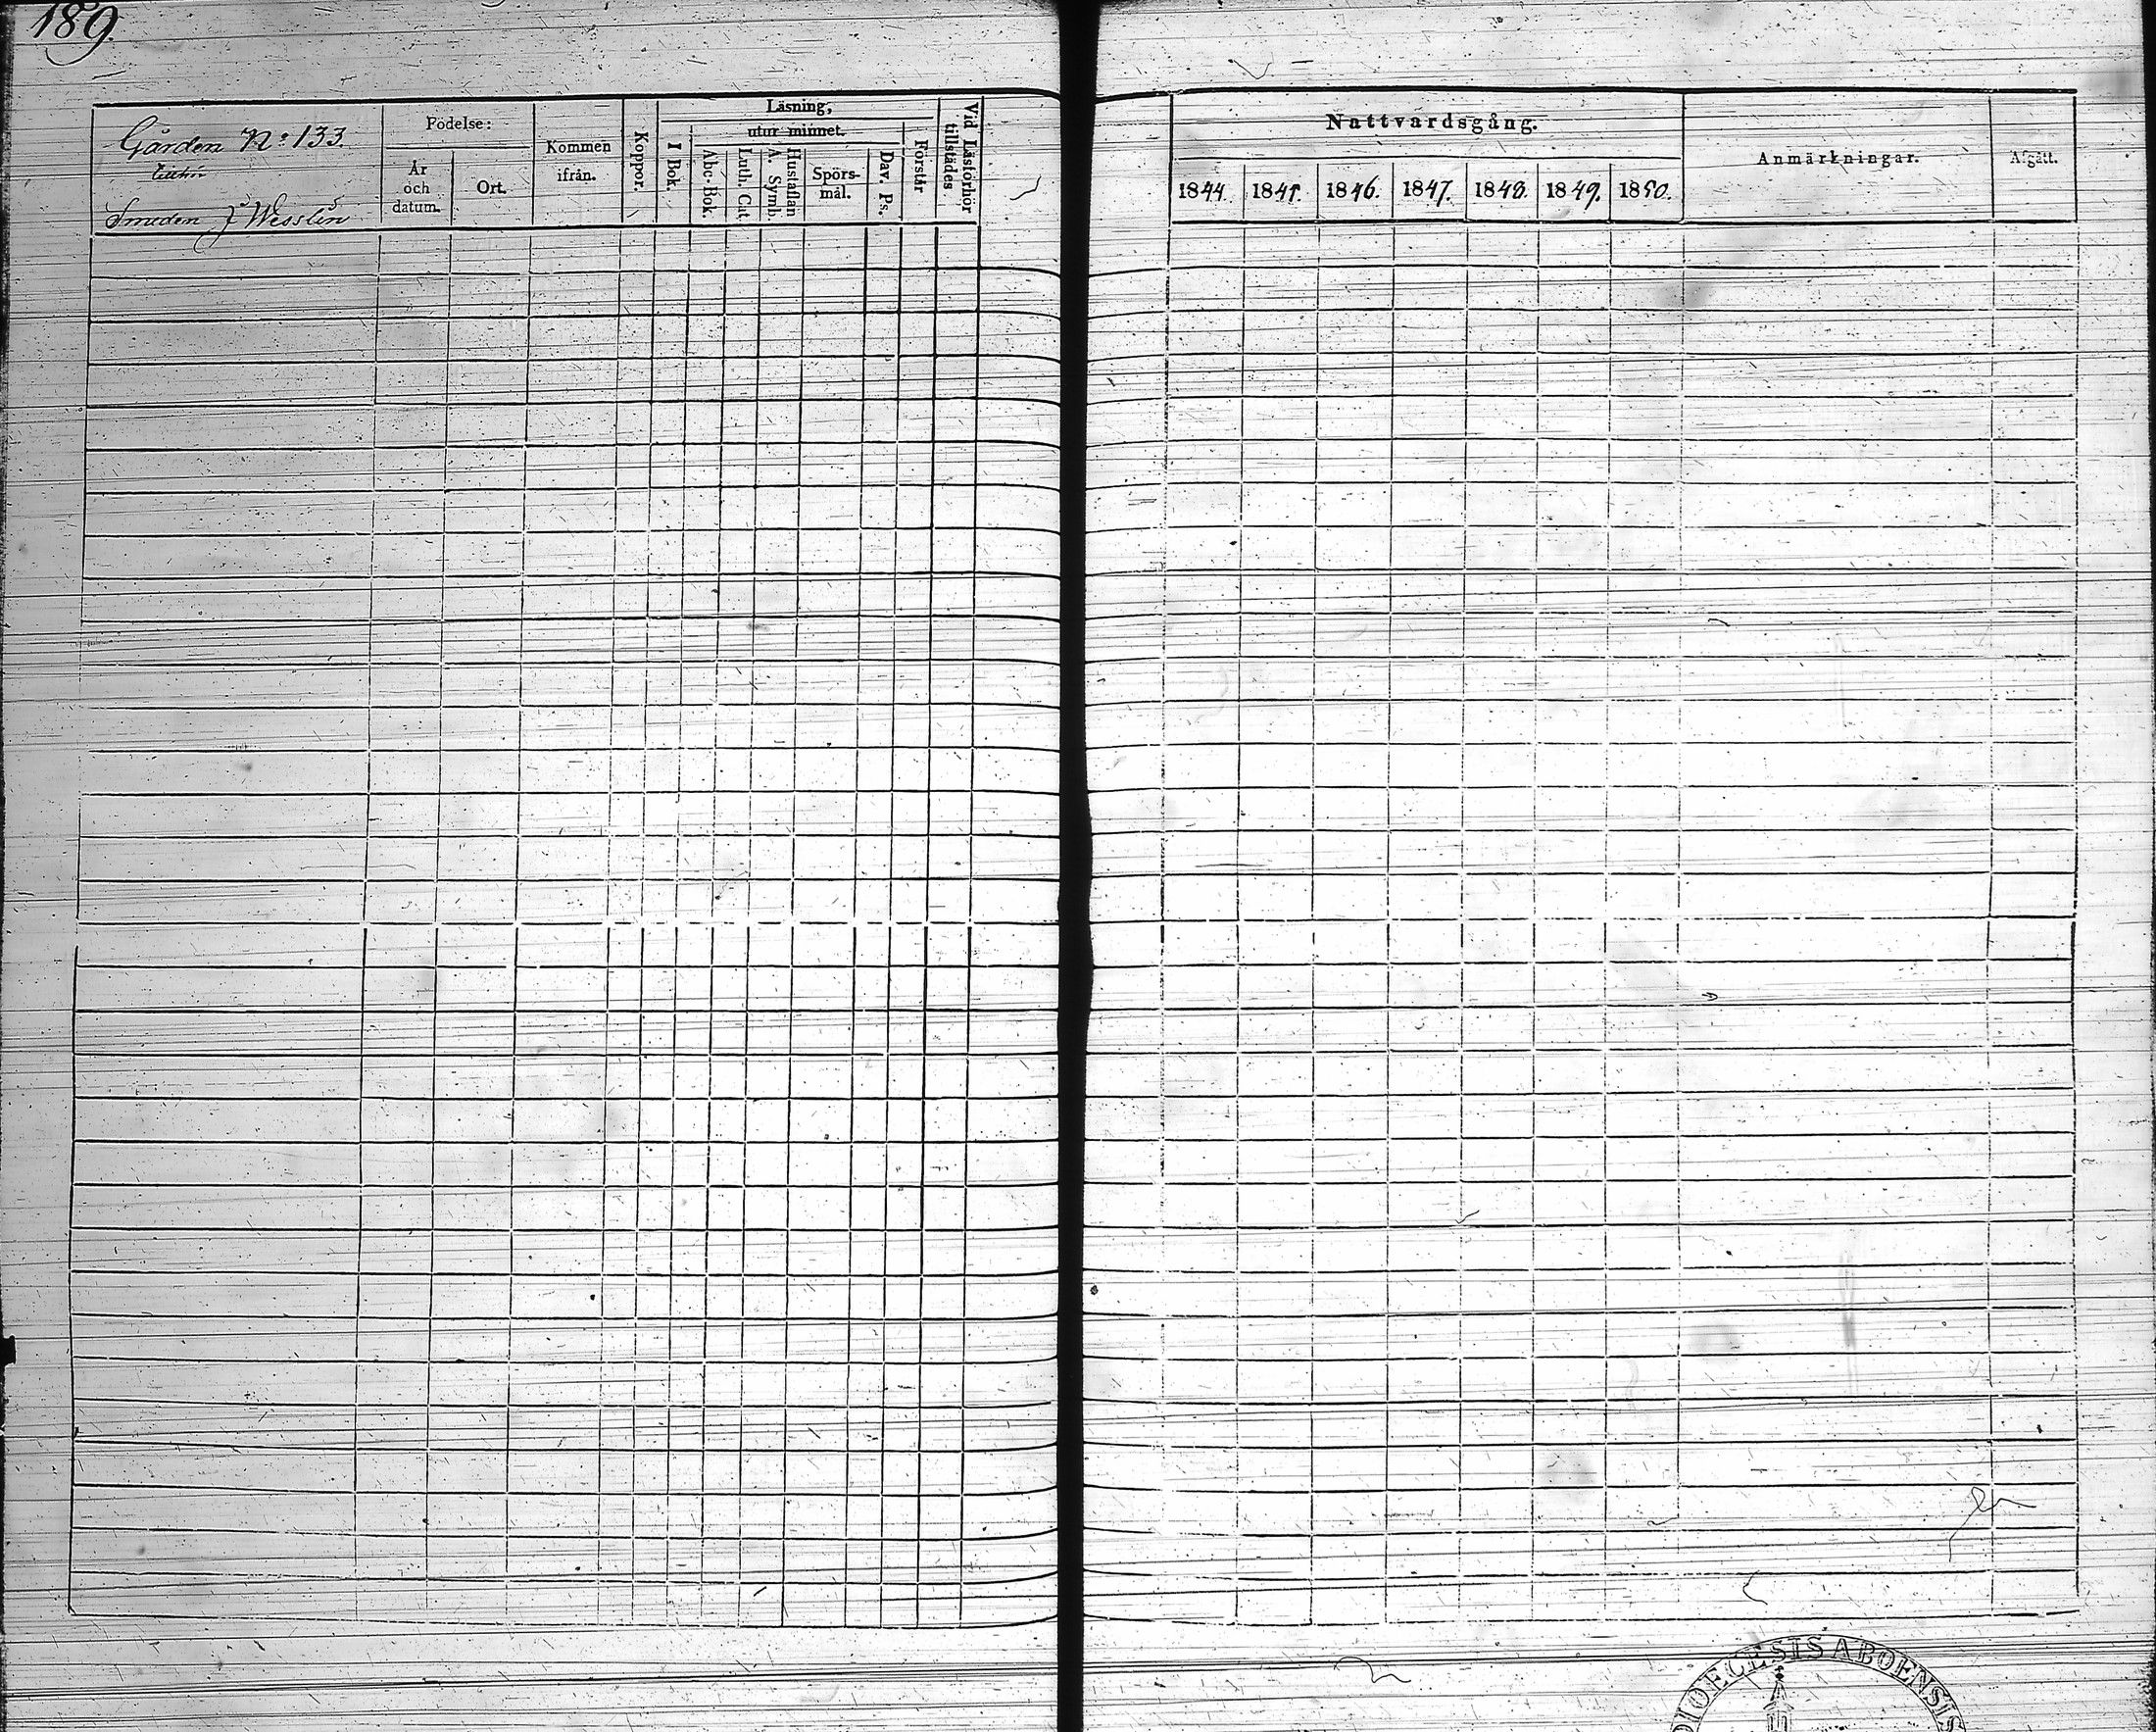 189
Gården Nº 133.
Smeden Wesslin
Födelse:
År och datum.
Ort.
Kommen ifrån.
Koppor.
Läsning,
utur minnet.
I Bok.
Abc-Bok.
Luth. Cat
A. Symb.
Hustaflan
Spörs-
mål.
Dav. Ps.
Förstår
Vid Läsförhör
tillstädes
Nattvardsgång.
1844. 1845. 1846. 1847. 1848. 1849. 1850.
Anmärkningar.
Afgått.
DIOECESIS ABOENSIS